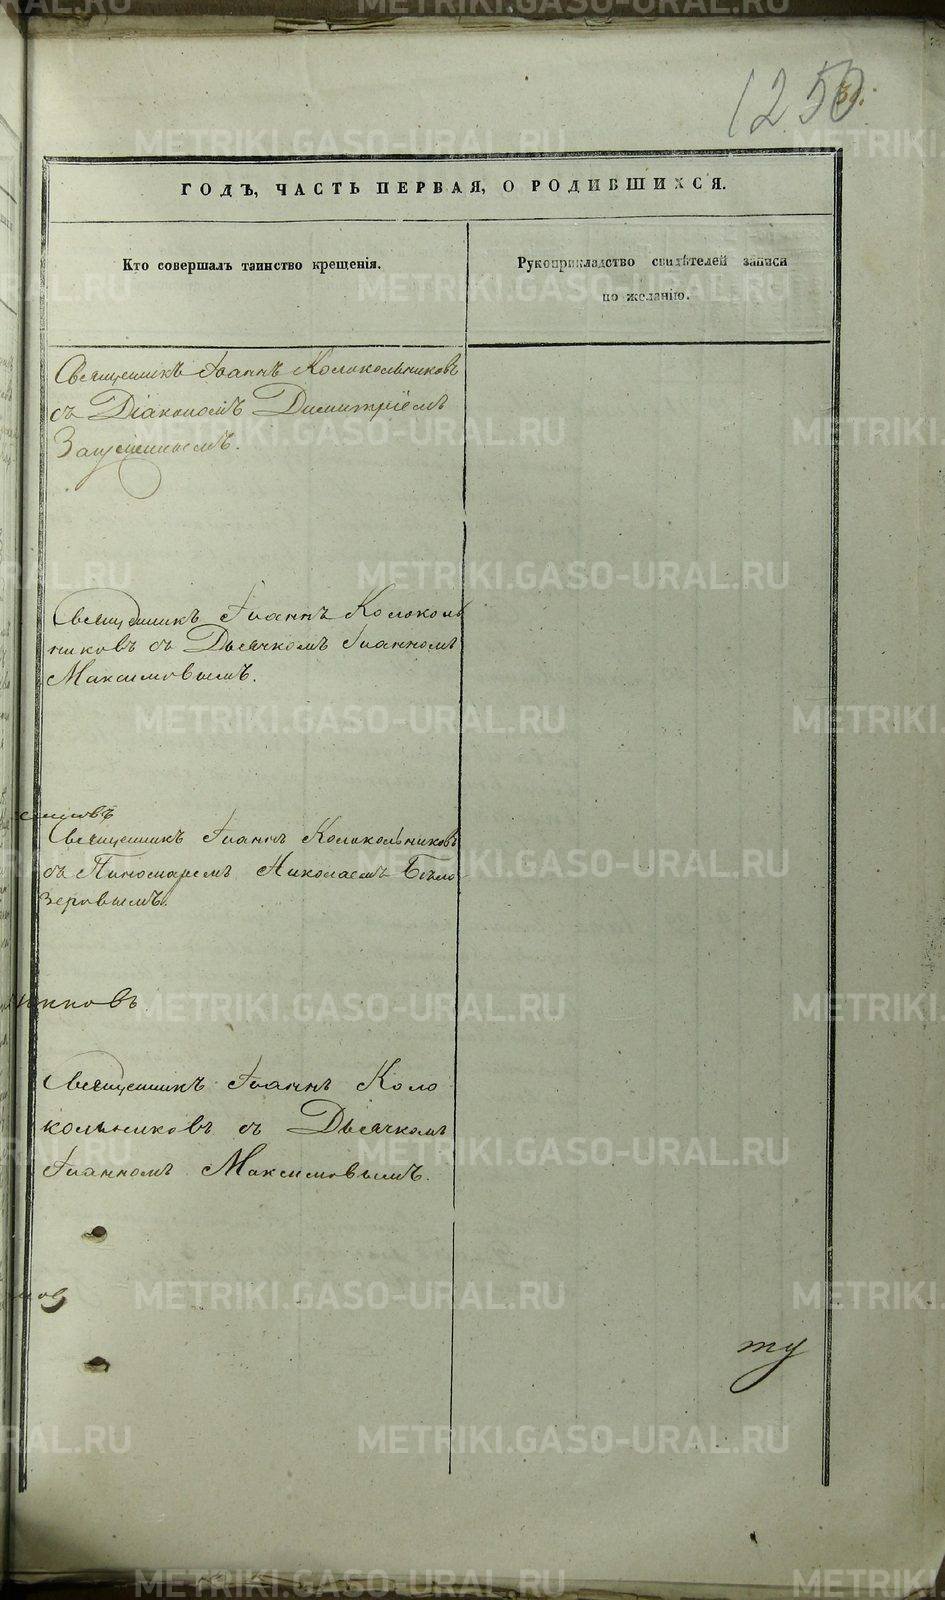 1250
ГОДЪ, ЧАСТЬ ПЕРВАЯ, О РОДИВШИХСЯ.
Кто совершалъ таинство крещенія.
Рукоприкладство свидѣтелей записи
по желанію.
Священникъ Іоаннъ Колокольниковъ
съ Діакономъ Димитріемъ
Священникъ Іоаннъ Коло­коль
никовъ съ Дьячкомъ Іоанномъ
Максимовымъ.
Священникъ Іоаннъ Колокольниковъ
съ Пономаремъ Николаемъ Бѣло
зеровымъ.
никовъ
Священникъ Іоаннъ Коло
кольниковъ съ Дьячкомъ
Іоанномъ Максимовымъ.
ту
METRIKI.GASO-URAL.RU